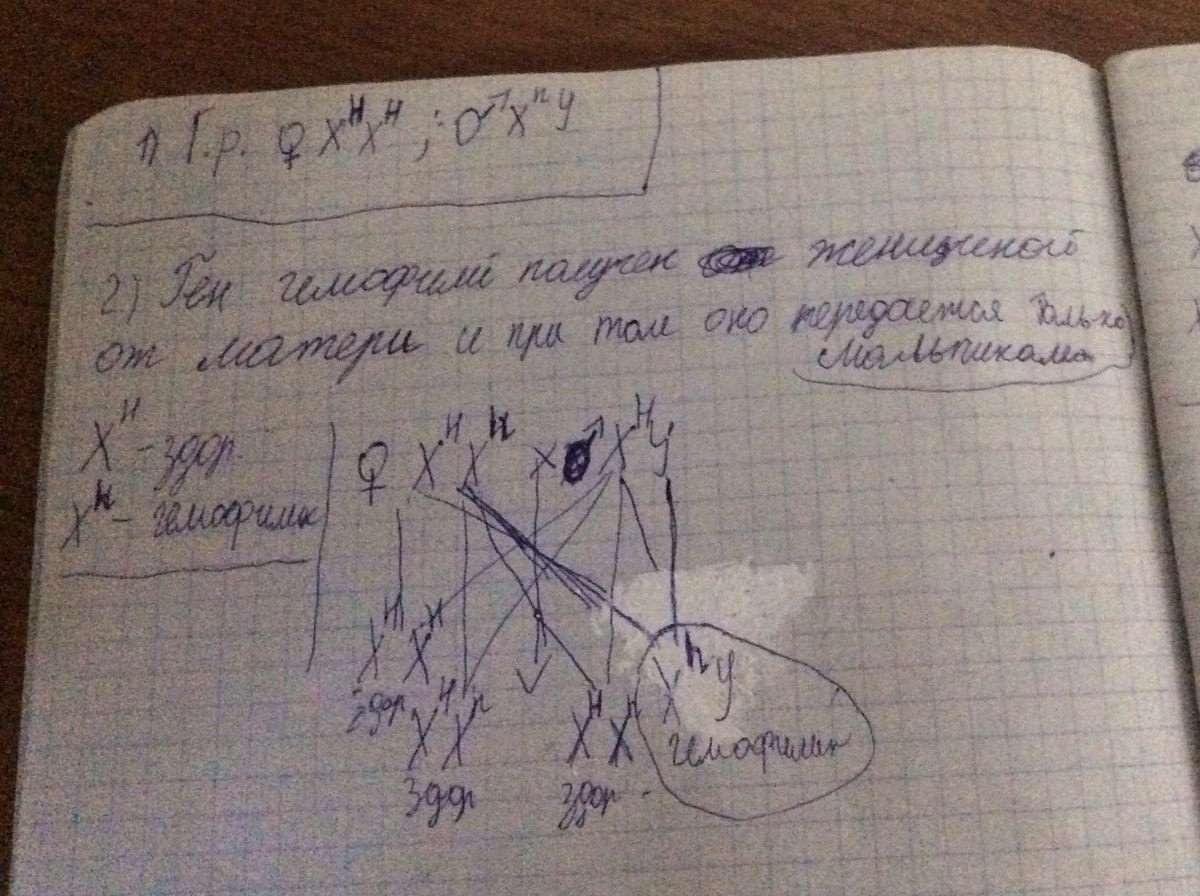 1) Г.р. ♀ X^H X^H ; ♂ X^h y
2) Ген гемофилі получен женщиной
от матери и при том оно передается только
мальчикам
X^H - здор.
X^h - гемофилик
♀ X^H X^h x ♂ X^H y
X^H X^H
здор
X^H X^h
здор
X^H X^h
здор
X^h y
гемофилик